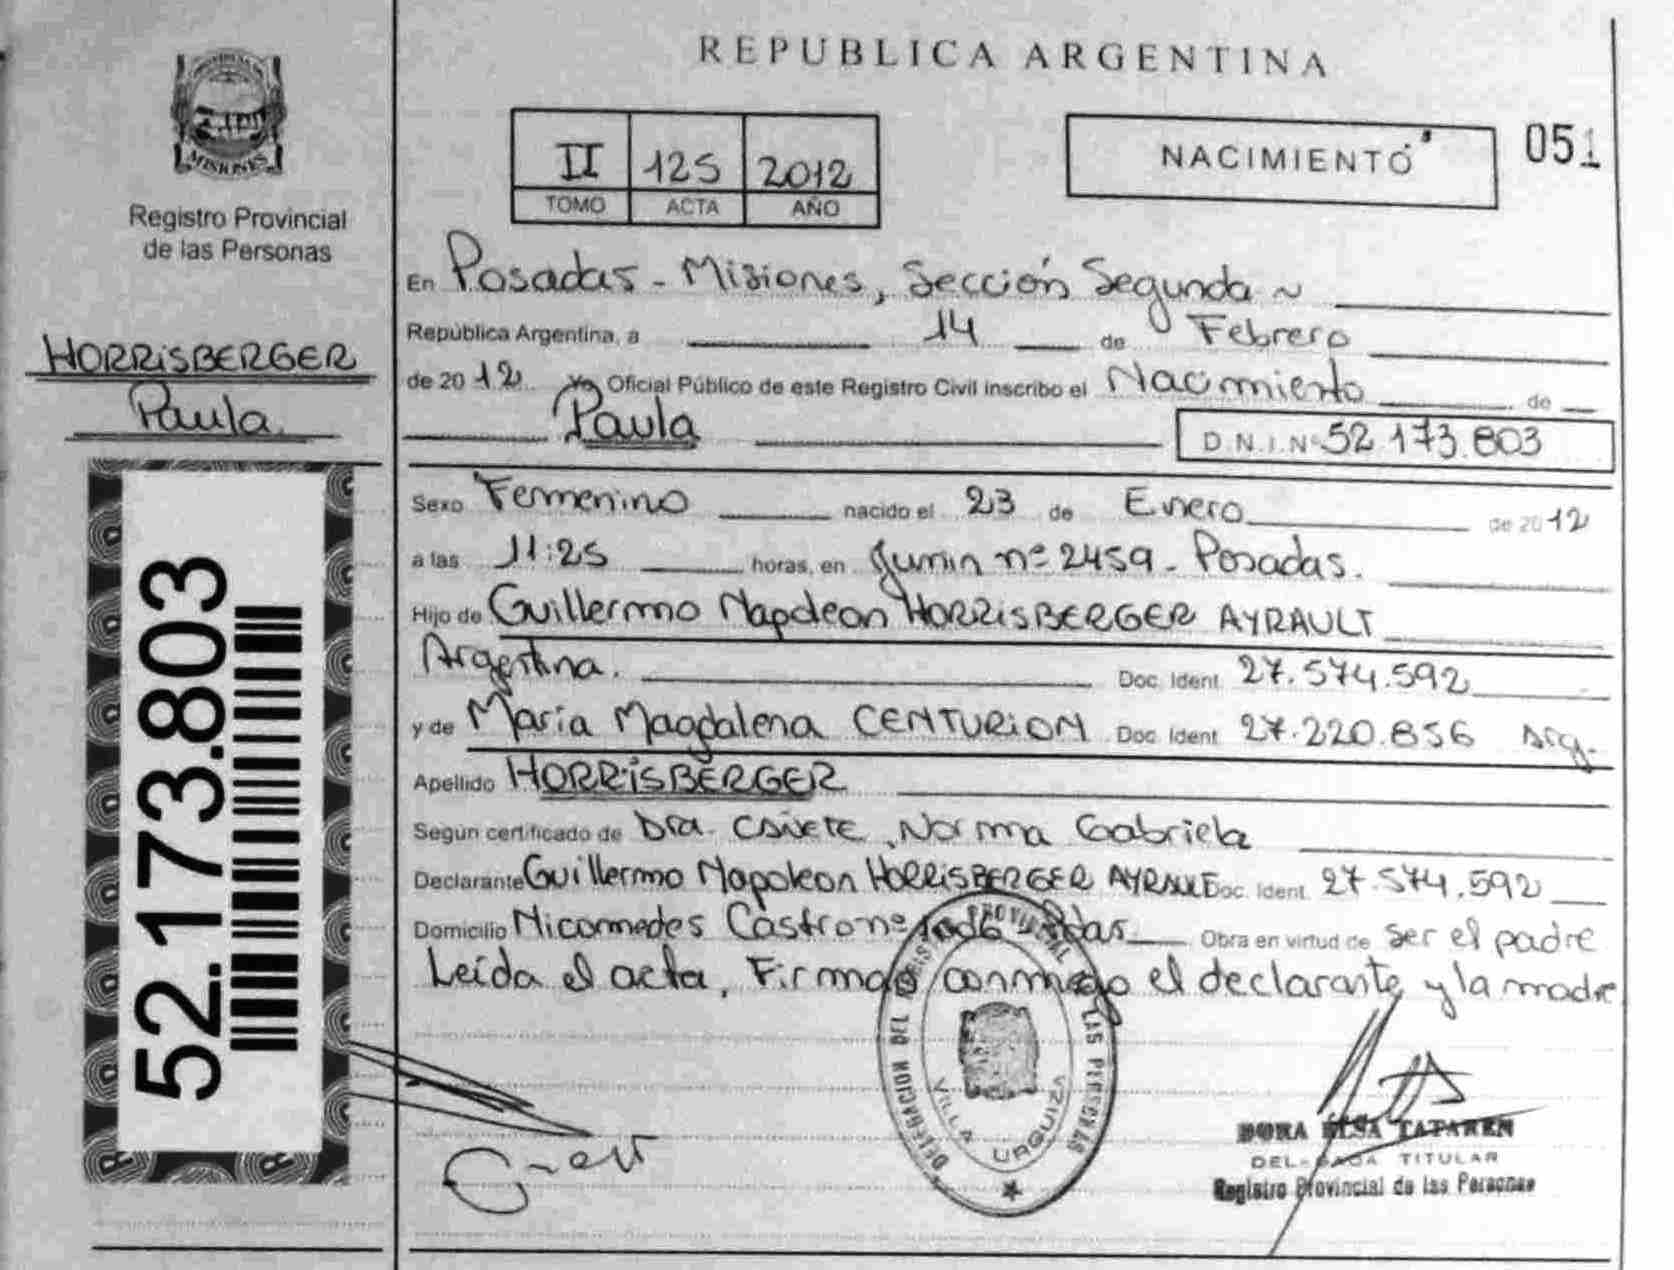 MISIONES
Registro Provincial
de las Personas
HORRISBERGER
Paula
52.173.803
REPUBLICA ARGENTINA
II 125 2012
TOMO ACTA AÑO
NACIMIENTO
051
En Posadas - Misiones, Sección Segunda ~
República Argentina, a 14 de Febrero
de 2012. Yo Oficial Público de este Registro Civil inscribo el Nacimiento de
Paula D.N.I.Nº 52.173.803
Sexo Femenino nacido el 23 de Enero de 2012
a las 11:25 horas, en Junin nº 2459 - Posadas.
Hijo de Guillermo Napoleon HORRISBERGER AYRAULT
Argentina. Doc. Ident. 27.574.592
y de Maria Magdalena CENTURION Doc. Ident. 27.220.856 Arg.
Apellido HORRISBERGER
Según certificado de Dra. Norma Gabriela
Declarante Guillermo Napoleon HORRISBERGER AYRAULT Doc. Ident. 27.574.592
Domicilio Nicomedes Castro nº Obra en virtud de ser el padre
Leída el acta, Firmado conmigo el declarante y la madre
DELEGACION DEL REGISTRO PROVINCIAL DE LAS PERSONAS
VILLA URQUIZA
DORA ELSA
DELEGADA TITULAR
Registro Provincial de las Personas